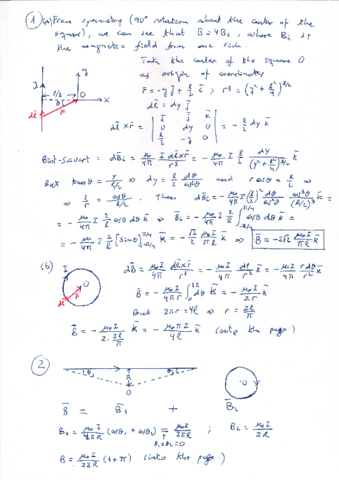 ① (a) From symmetry (90° rotation about the center of the
square), we can see that B̄ = 4B̄₁, where B̄₁ is
the magnetic field from one side.
Take the center of the square O
as origin of coordinates
r̄ = -y j̄ + ℓ/2 ī ; r² = (y² + ℓ²/4)
dl̄ = dy j̄
dl̄ x r̄ = | ī j̄ k̄ ; 0 dy 0 ; ℓ/2 -y 0 | = -ℓ/2 dy k̄
Biot-Savart: dB̄₁ = μ₀/4π I dl̄xr̄/r³ = -μ₀/4π I ℓ/2 dy/(y²+ℓ²/4)^3/2 k̄
But tanθ = y/(ℓ/2) ⇒ dy = ℓ/2 dθ/cos²θ and r cosθ = ℓ/2 ⇒
⇒ 1/r = cosθ/(ℓ/2). Then dB̄₁ = -μ₀/4π I (ℓ/2)² dθ/cos²θ cos³θ/(ℓ/2)³ k̄ =
= -μ₀/4π I 2/ℓ cosθ dθ k̄ ⇒ B̄₁ = -μ₀/4π I 2/ℓ ∫ cosθ dθ k̄ =
= -μ₀/4π I 2/ℓ [sinθ] k̄ = -√2/2 μ₀I/πℓ k̄ ⇒ B̄ = -2√2 μ₀I/πℓ k̄
(b) dB̄ = μ₀I/4π dl̄xr̄/r³ = -μ₀I/4π dl/r² k̄ = -μ₀I/4π r dθ/r² k̄
B̄ = -μ₀I/4πr ∫₀^2π dθ k̄ = -μ₀I/2r k̄
But 2πr = 4ℓ ⇒ r = 2ℓ/π
B̄ = -μ₀I/(2·2ℓ/π) k̄ = -μ₀πI/4ℓ k̄ (into the page)
②
B̄ = B̄₁ + B̄₂
B₁ = μ₀I/4πR (cosθ₁ + cosθ₂) = μ₀I/2πR ; B₂ = μ₀I/2R
θ₁=θ₂=0
B = μ₀I/2πR (1+π) (into the page)